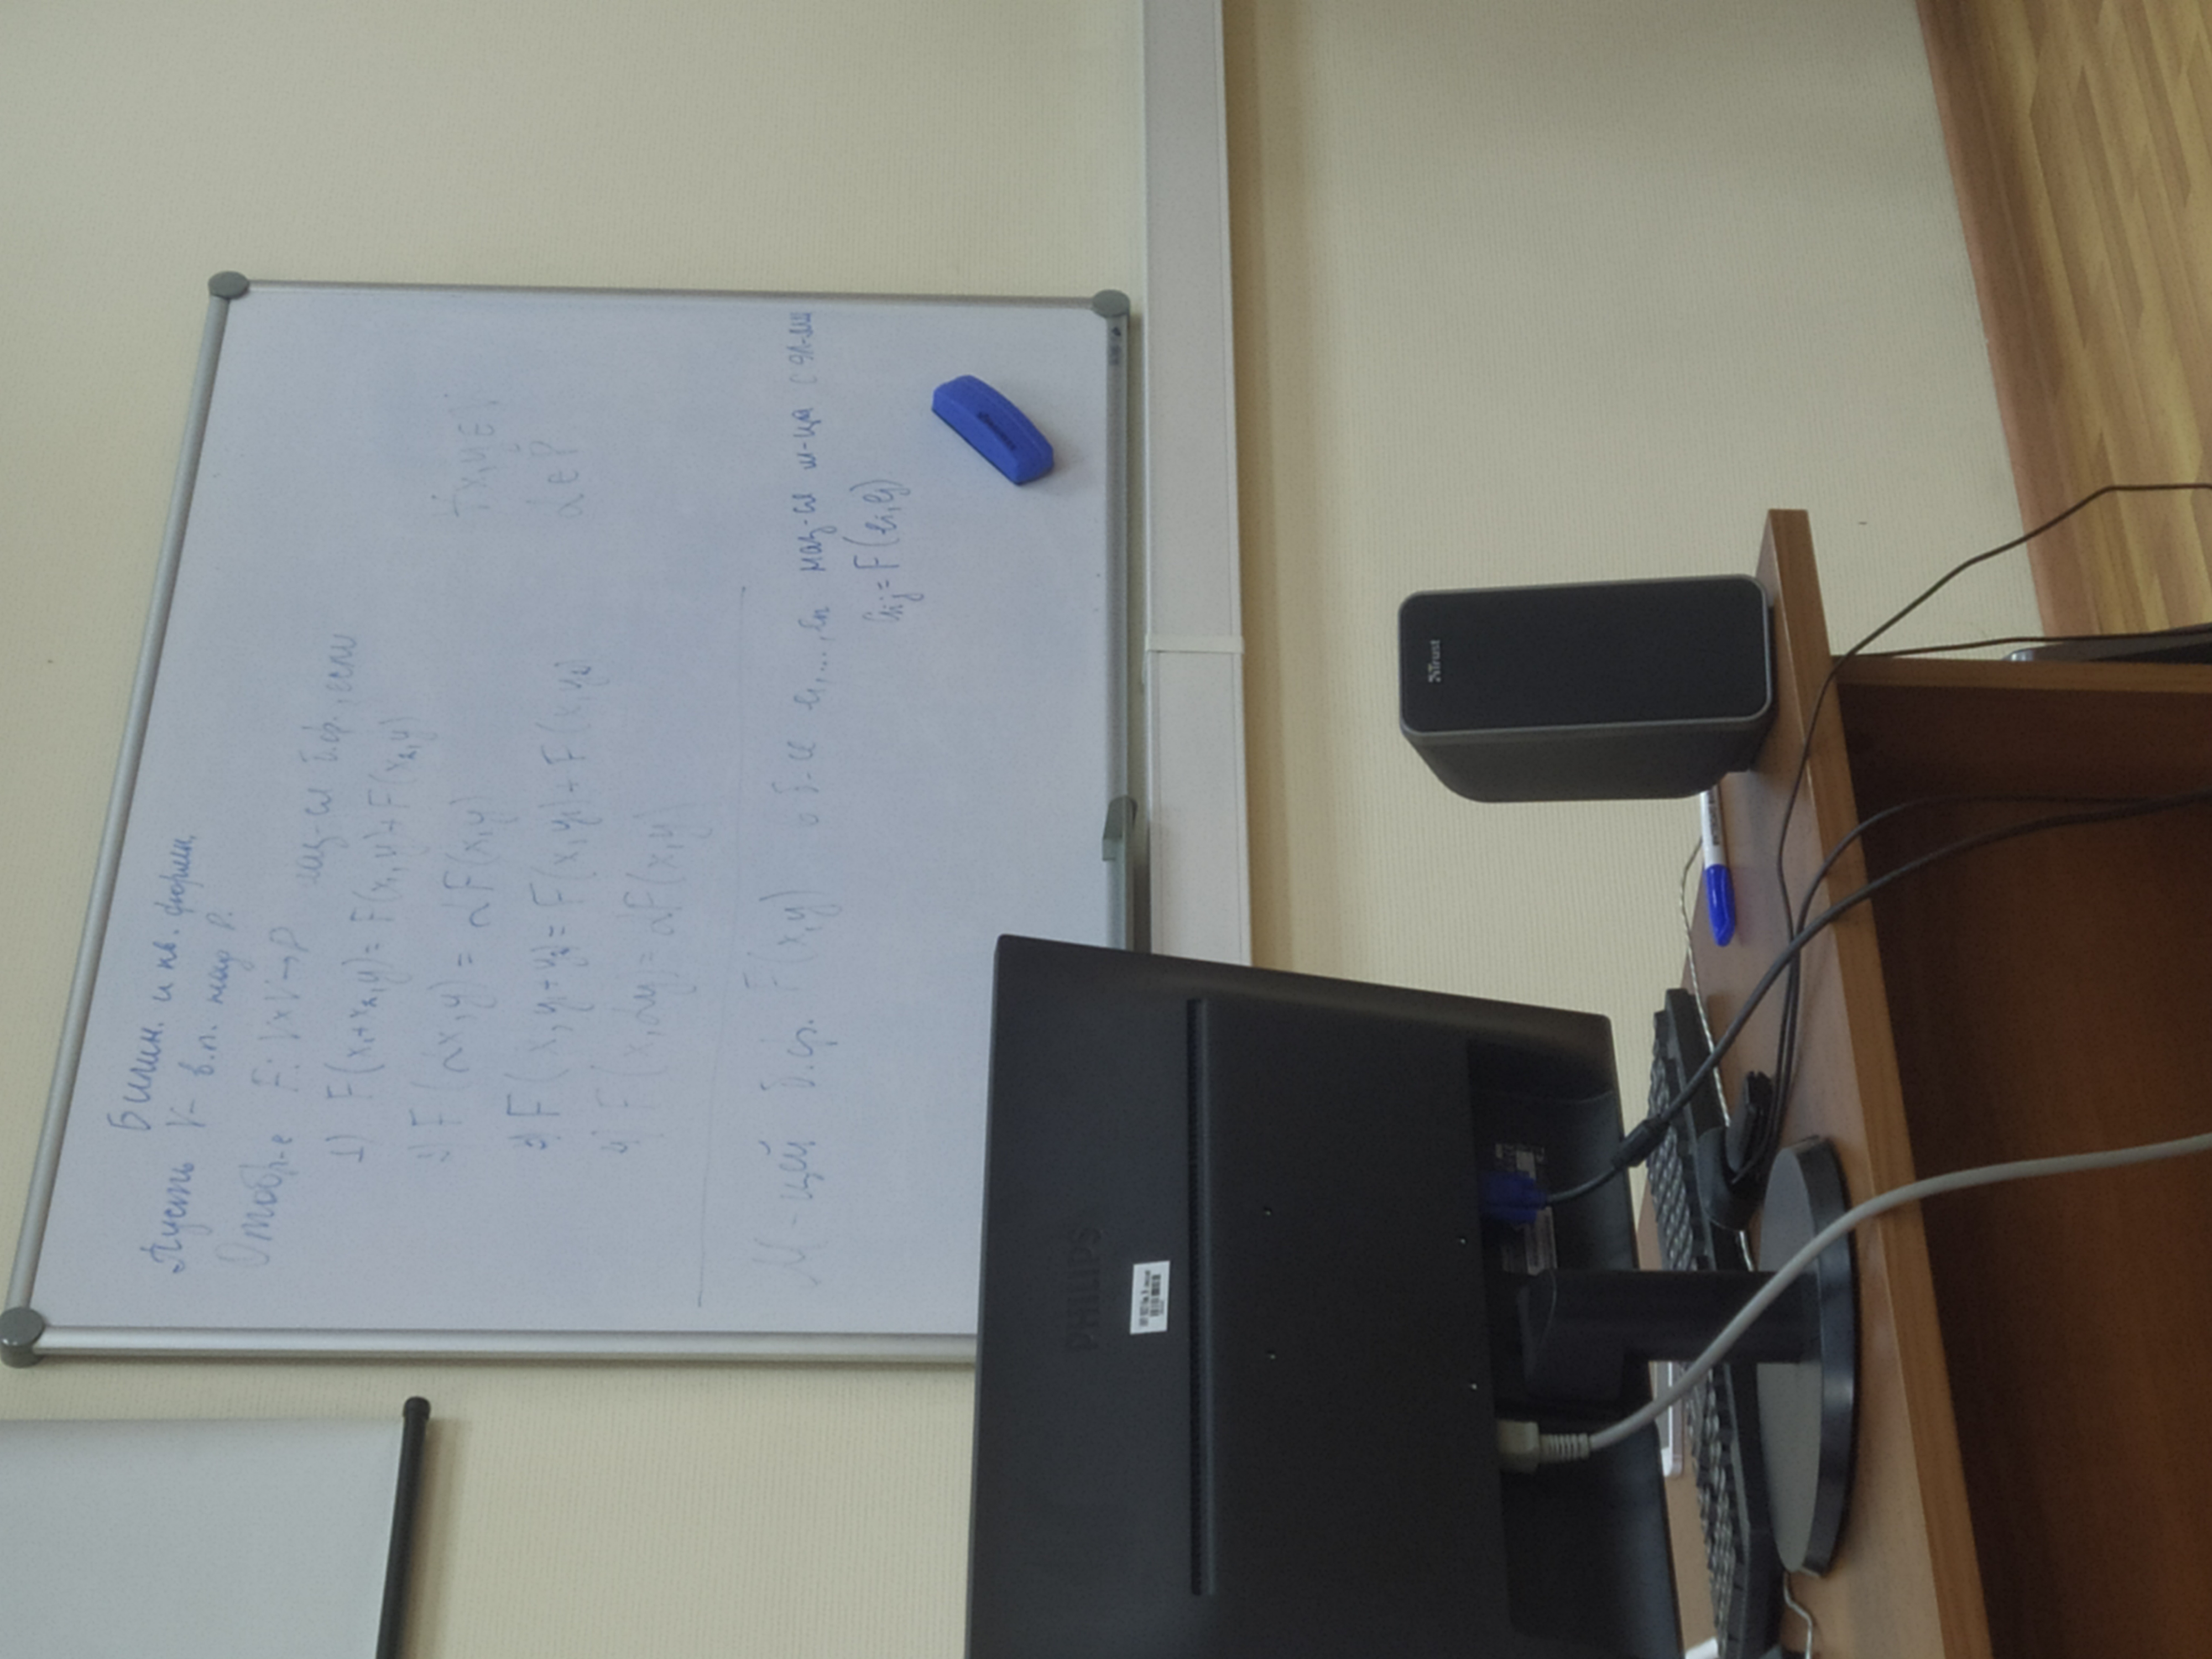 Билин. и кв. формы.
Пусть V- в.п. над P.
Отобр-е F: V×V→P наз-ся б.ф., если
1) F(x₁+x₂,y)= F(x₁,y)+F(x₂,y)
2) F(αx,y) = αF(x,y)
∀x,y∈V
3) F(x,y₁+y₂)= F(x,y₁)+F(x,y₂)
α∈P
4) F(x,αy)= αF(x,y)
М-цей б.ф. F(x,y) в б-се e₁,...,eₙ наз-ся м-ца с эл-ами
aᵢⱼ=F(eᵢ,eⱼ)
PHILIPS
Trust